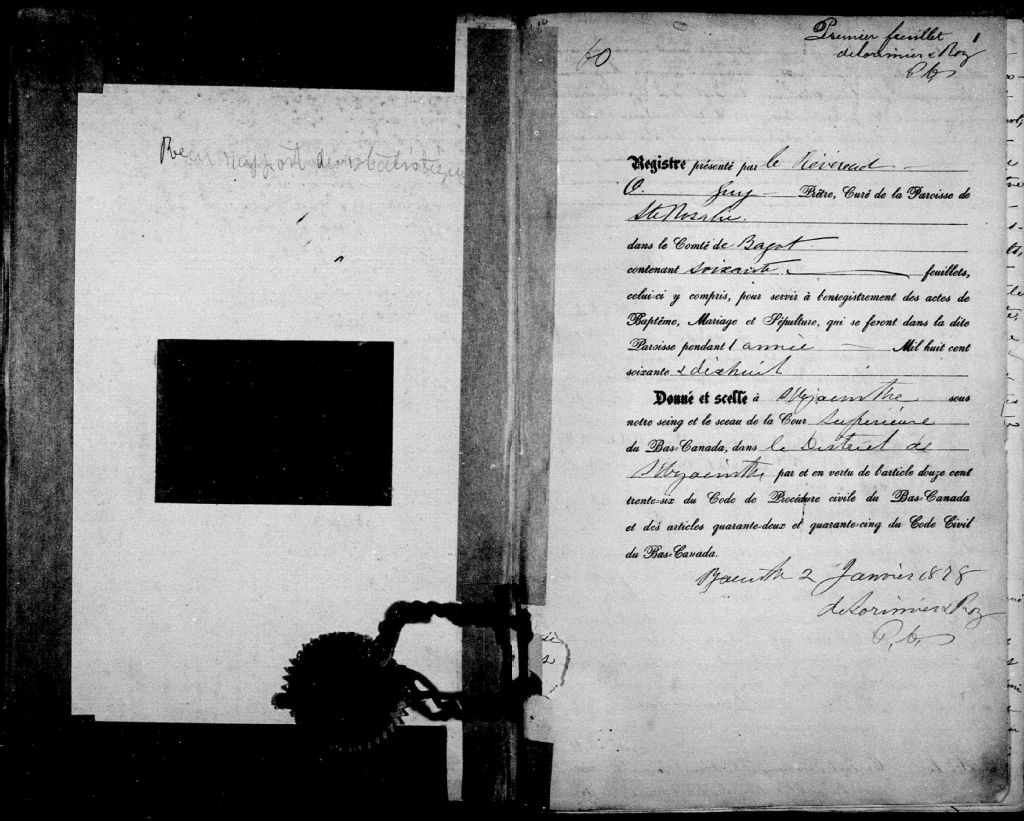 Recu rapport de statistique
60
Premier feuillet 1
deLorimier & Roy
P.C.S
Registre présenté par le Révérend
O. Guy Prêtre, Curé de la Paroisse de
Ste Rosalie
dans le Comté de Bagot
contenant soixante feuillets,
celui-ci y compris, pour servir à l'enregistrement des actes de
Baptême, Mariage et Sépulture, qui se feront dans la dite
Paroisse pendant l année Mil huit cent
soixante & dixhuit
Donné et scellé à St Hyacinthe sous
notre seing et le sceau de la Cour Supérieure
du Bas-Canada, dans le District de
St Hyacinthe, par et en vertu de l'article douze cent
trente-six du Code de Procédure civile du Bas-Canada
et des articles quarante-deux et quarante-cinq du Code Civil
du Bas-Canada.
2 Janvier 1878
deLorimier & Roy
P.C.S